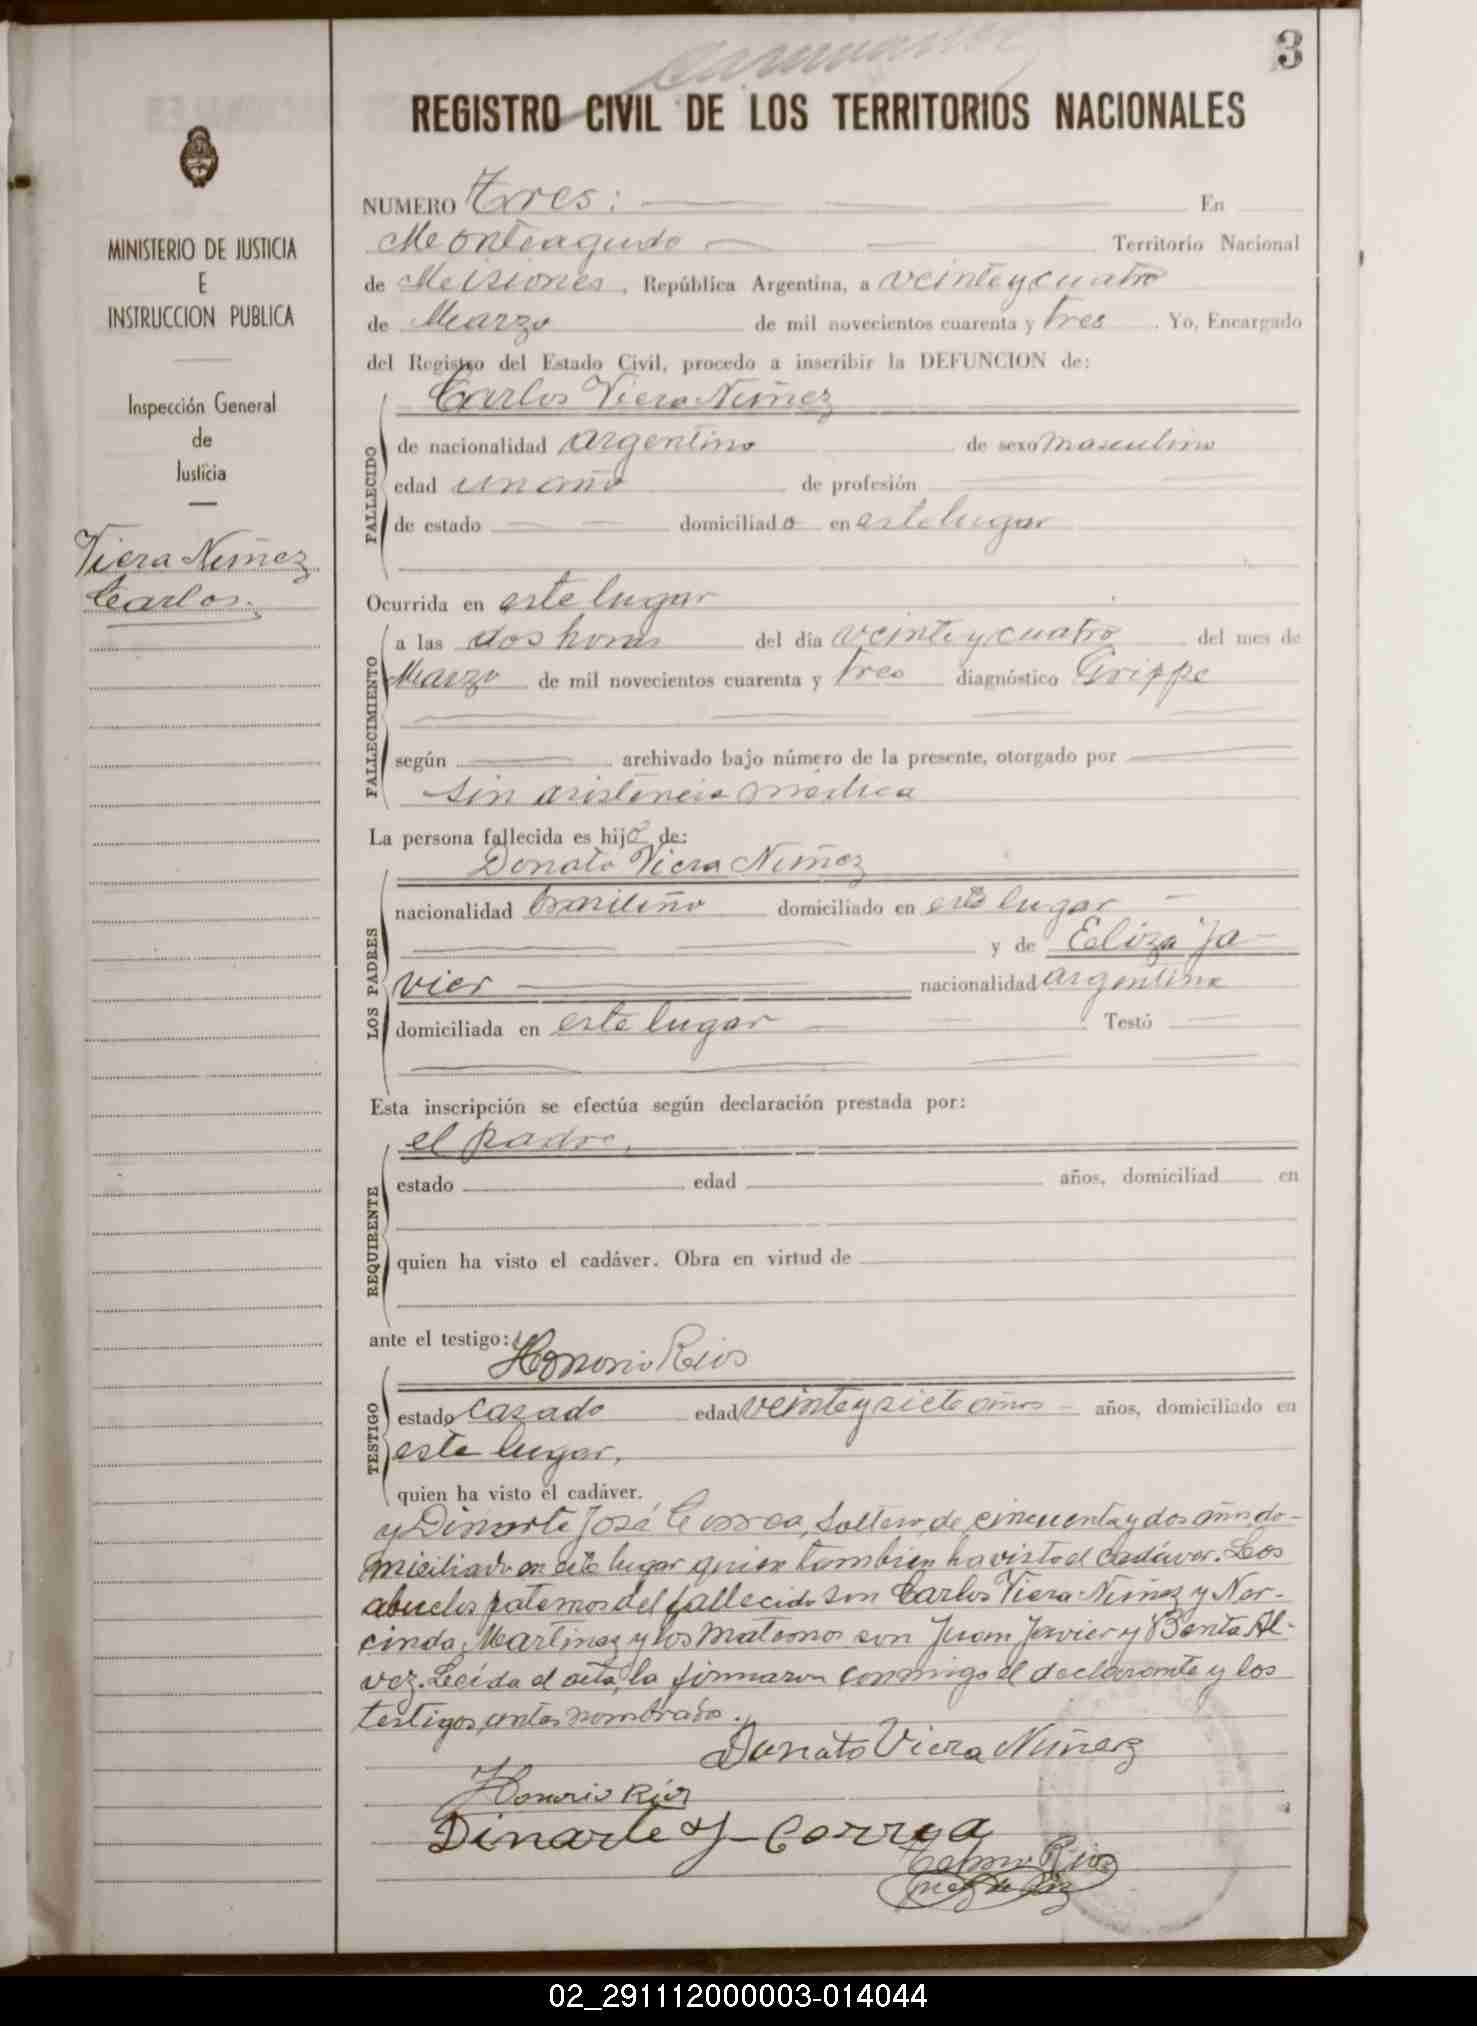 3
REGISTRO CIVIL DE LOS TERRITORIOS NACIONALES
MINISTERIO DE JUSTICIA
E
INSTRUCCION PUBLICA
Inspección General
de
Justicia
Viera Nuñez
Carlos.
NUMERO Tres: En
Monteagudo Territorio Nacional
de Misiones, República Argentina, a veinte y cuatro
de Marzo de mil novecientos cuarenta y tres. Yo, Encargado
del Registro del Estado Civil, procedo a inscribir la DEFUNCION de:
Carlos Viera Nuñez
FALLECIDO
de nacionalidad argentino de sexo masculino
edad un año de profesión
de estado domiciliado en este lugar
Ocurrida en este lugar
FALLECIMIENTO
a las dos horas del día veinte y cuatro del mes de
Marzo de mil novecientos cuarenta y tres diagnóstico Grippe
según archivado bajo número de la presente, otorgado por
sin asistencia médica
La persona fallecida es hijo de:
LOS PADRES
Donato Viera Nuñez
nacionalidad brasileño domiciliado en este lugar
y de Eliza Ja-
vier nacionalidad argentina
domiciliada en este lugar Testó
Esta inscripción se efectúa según declaración prestada por:
REQUIRENTE
el padre,
estado edad años, domiciliad en
quien ha visto el cadáver. Obra en virtud de
ante el testigo:
TESTIGO
Honorio Rios
estado casado edad veinte y siete años años, domiciliado en
este lugar,
quien ha visto el cadáver.
y Dinarte José Correa, soltero, de cincuenta y dos años do-
miciliado en este lugar quien tambien ha visto el cadáver. Los
abuelos paternos del fallecido son Carlos Viera Nuñez y Nar-
cinda Martinez y los maternos son Juan Javier y Benta Al-
vez. Leída el acta, la firmaron conmigo el declarante y los
testigos antes nombrados.
Donato Viera Nuñez
Honorio Rios
Dinarte J- Correa
Rios
02_291112000003-014044